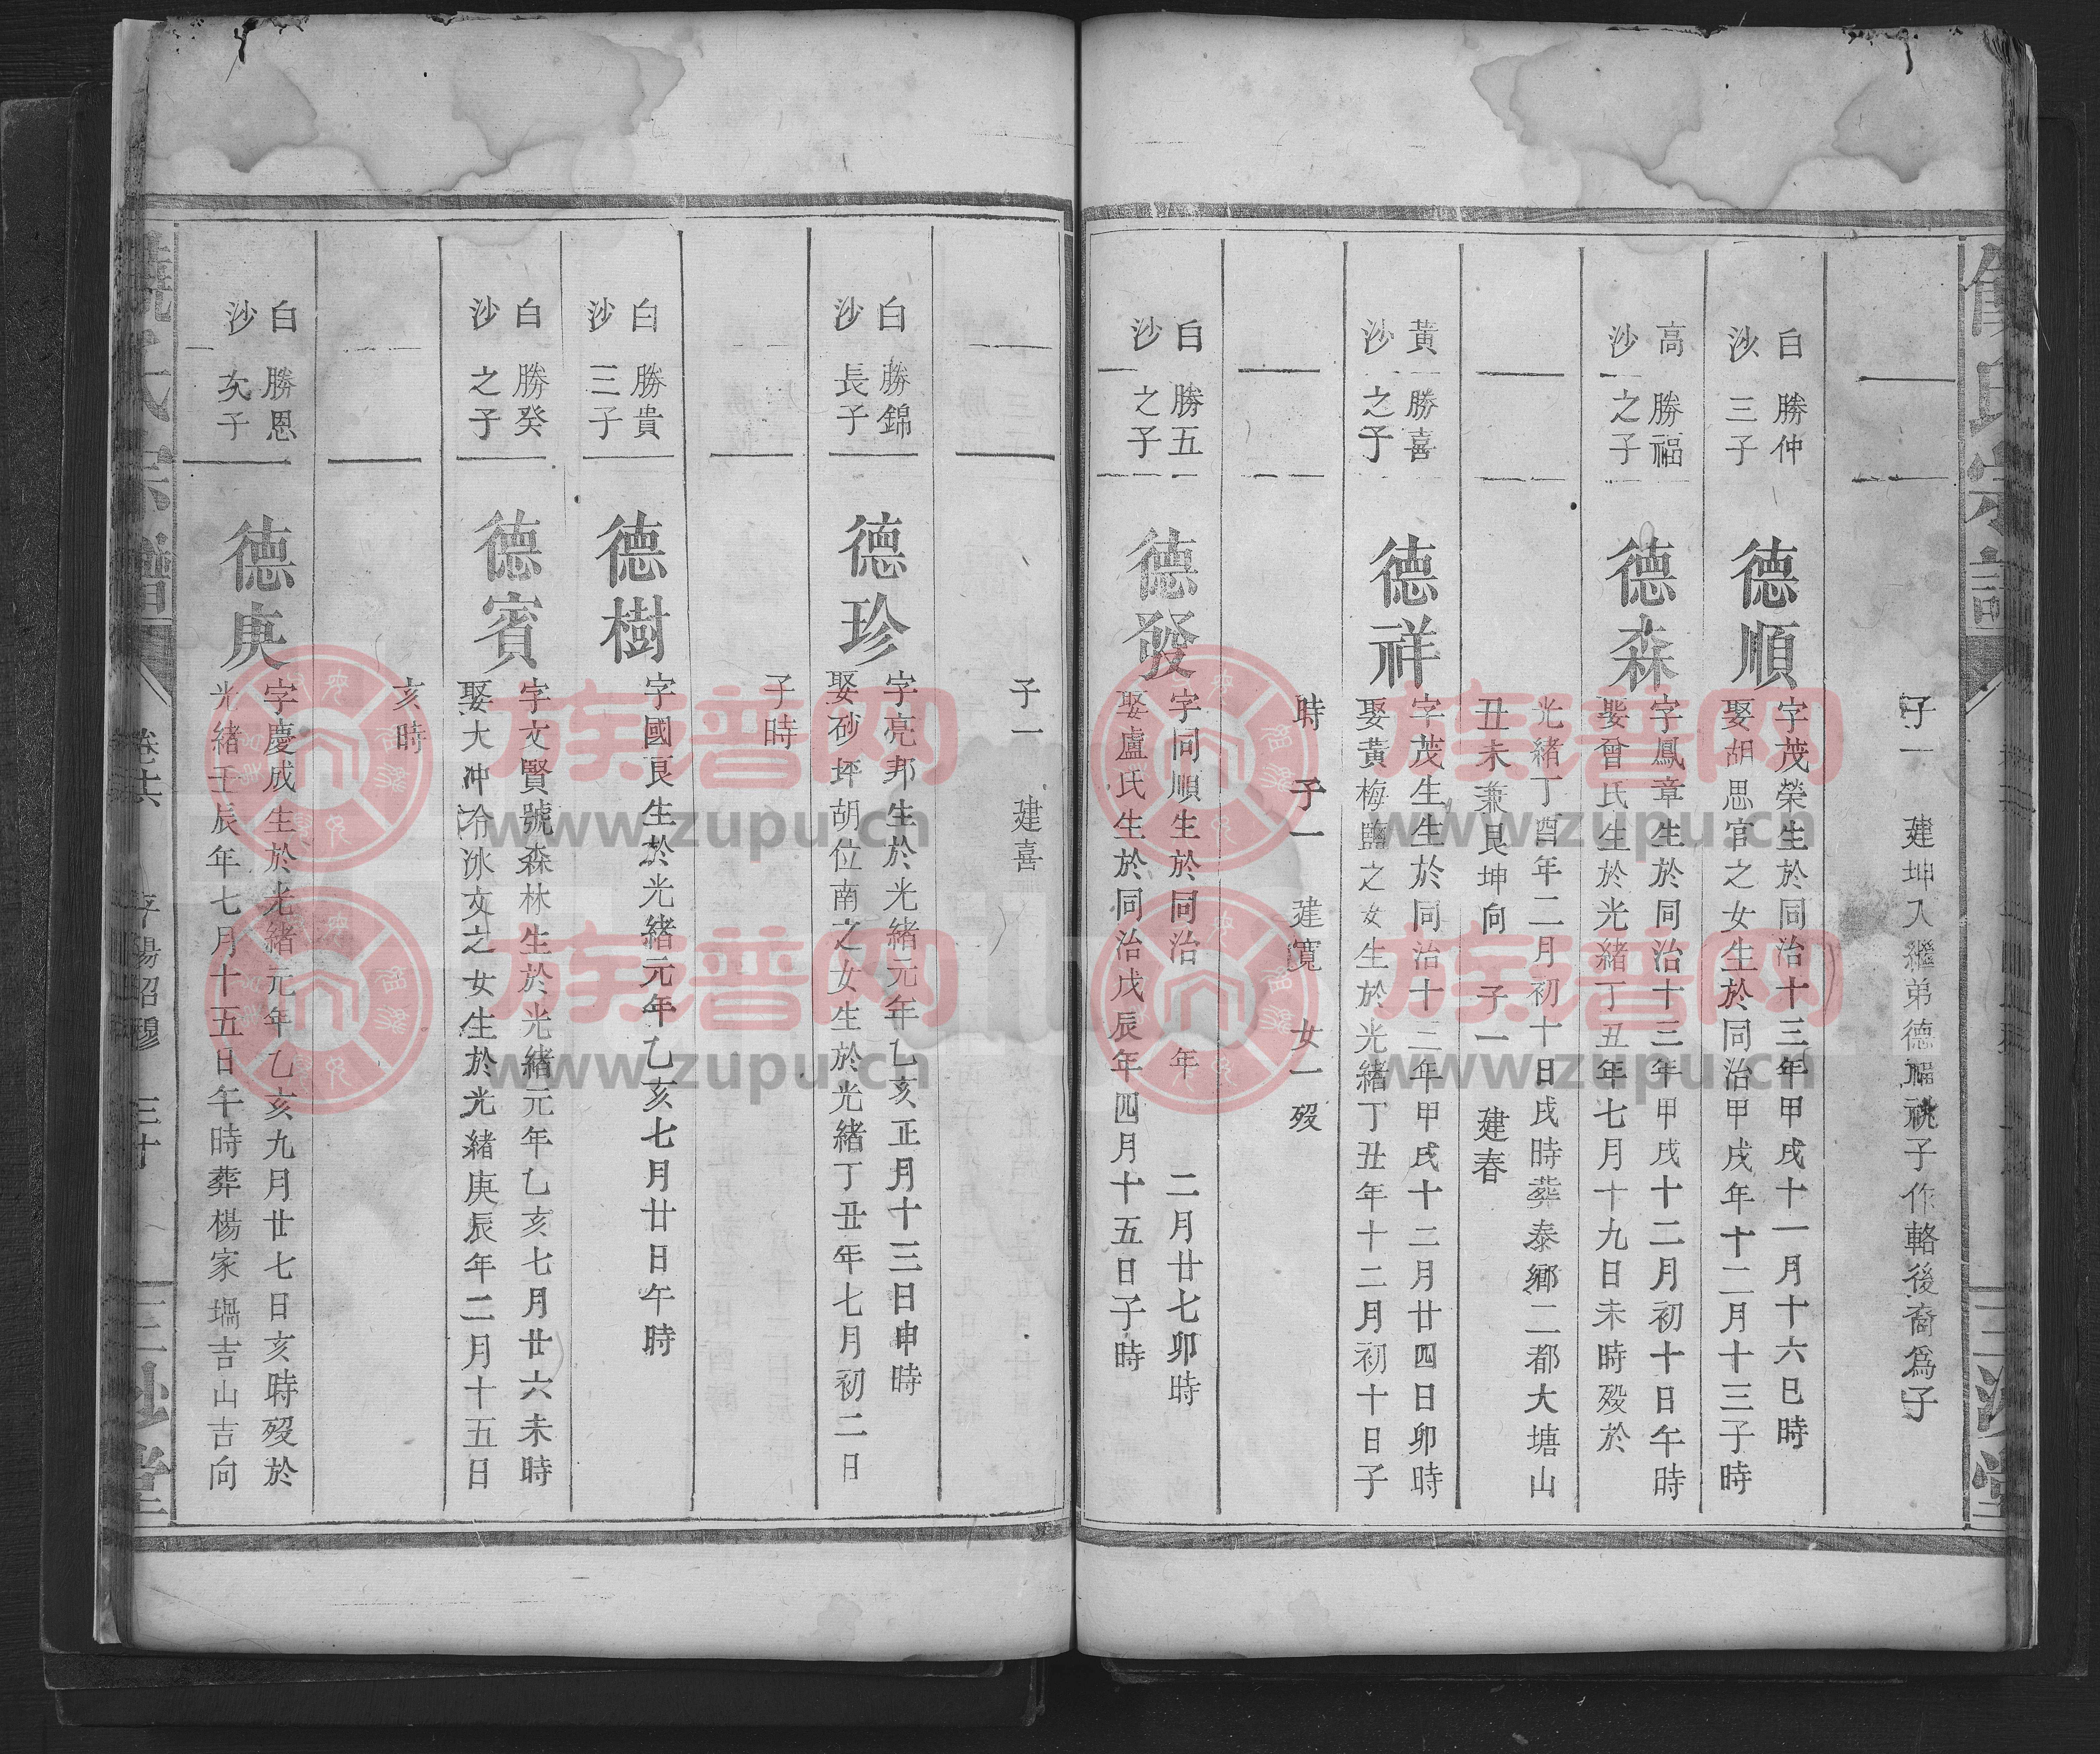 子一 建坤入繼弟德福祧子作輅後裔爲子
白沙 勝仲三子 德順 字茂榮生於同治十三年甲戌十一月十六巳時
娶胡思官之女生於同治甲戌年十二月十三子時
高沙 勝福之子 德森 字鳳章生於同治十三年甲戌十二月初十日午時
娶曾氏生於光緒丁丑年七月十九日未時歿於
光緒丁酉年二月初十日戌時葬泰鄉二都大塘山
丑未兼艮坤向 子一 建春
黃沙 勝喜之子 德祥 字茂生生於同治十三年甲戌十二月廿四日卯時
娶黃梅鹽之女生於光緒丁丑年十二月初十日子
時 子一 建寬 女一歿
白沙 勝五之子 德發 字同順生於同治 年 二月廿七卯時
娶盧氏生於同治戊辰年四月十五日子時
子一 建喜
白沙 勝錦長子 德珍 字亮邦生於光緒元年乙亥正月十三日申時
娶砂坪胡位南之女生於光緒丁丑年七月初二日
子時
白沙 勝貴三子 德樹 字國良生於光緒元年乙亥七月廿日午時
白沙 勝癸之子 德賓 字文賢號森林生於光緒元年乙亥七月廿六未時
娶大冲冷冰文之女生於光緒庚辰年二月十五日
亥時
白沙 勝恩次子 德庚 字慶成生於光緒元年乙亥九月廿七日亥時歿於
光緒壬辰年七月十五日午時葬楊家塌吉山吉向
氏宗譜 卷廿六 平陽昭穆 三十 堂
族譜网
www.zupu.cn
族譜网
www.zupu.cn
族譜网
www.zupu.cn
族譜网
www.zupu.cn